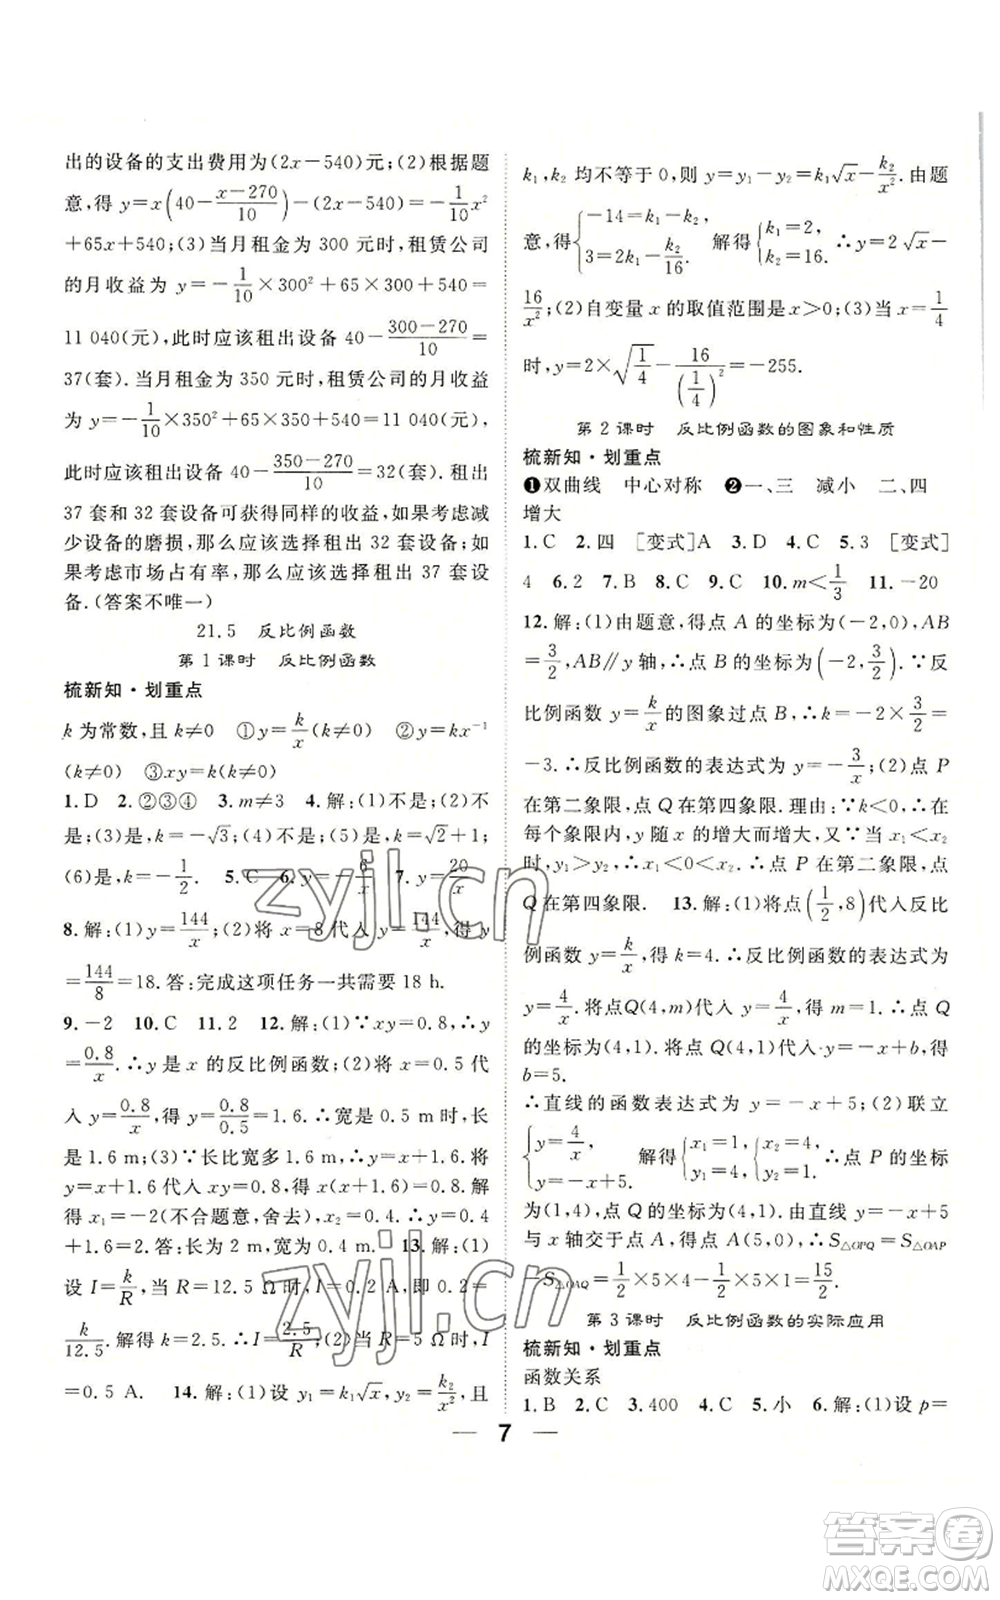 出的设备的支出费用为(2x-540)元;(2)根据题
意,得 y=x(40-\frac{x-270}{10})-(2x-540)=-\frac{1}{10}x²
+65x+540;(3)当月租金为 300 元时,租赁公司
的月收益为 y=-\frac{1}{10}×300²+65×300+540=
11 040(元),此时应该租出设备 40-\frac{300-270}{10}=
37(套).当月租金为 350 元时,租赁公司的月收益
为 y=-\frac{1}{10}×350²+65×350+540=11 040(元),
此时应该租出设备 40-\frac{350-270}{10}=32(套).出租
37 套和 32 套设备可获得同样的收益,如果考虑减
少设备的磨损,那么应该选择租出 32 套设备;如
果考虑市场占有率,那么应该选择租出 37 套设
备.(答案不唯一)
21.5 反比例函数
第 1 课时 反比例函数
梳新知·划重点
k 为常数,且 k≠0 ①y=\frac{k}{x}(k≠0) ②y=kx⁻¹
(k≠0) ③xy=k(k≠0)
1.D 2.②③④ 3.m≠3 4.解:(1)不是;(2)不
是;(3)是,k=-\sqrt{3};(4)不是;(5)是,k=\sqrt{2}+1;
(6)是,k=-\frac{1}{2}. 5.C 6.y=-\frac{6}{x} 7.y=\frac{20}{x}
8.解:(1)y=\frac{144}{x};(2)将 x=8 代入 y=\frac{144}{x},得 y
=\frac{144}{8}=18.答:完成这项任务一共需要 18 h.
9.-2 10.C 11.2 12.解:(1)∵xy=0.8,∴y
=\frac{0.8}{x}.∴y 是 x 的反比例函数;(2)将 x=0.5 代
入 y=\frac{0.8}{x},得 y=\frac{0.8}{0.5}=1.6.∴宽是 0.5 m 时,长
是 1.6 m;(3)∵长比宽多 1.6 m,∴y=x+1.6.将
y=x+1.6 代入 xy=0.8,得 x(x+1.6)=0.8.解
得 x₁=-2(不合题意,舍去),x₂=0.4.∴y=0.4
+1.6=2.答:长为 2 m,宽为 0.4 m. 13.解:(1)
设 I=\frac{k}{R},当 R=12.5 Ω时,I=0.2 A,即 0.2=
\frac{k}{12.5}.∴k=2.5.∴I=\frac{2.5}{R};(2)当 R=5 Ω时,I
=0.5 A. 14.解:(1)设 y₁=k₁\sqrt{x},y₂=\frac{k₂}{x²},且
k₁,k₂ 均不等于 0,则 y=y₁-y₂=k₁\sqrt{x}-\frac{k₂}{x²}.由题
意,得{-14=k₁-k₂, 3=2k₁-\frac{k₂}{16}. 解得{k₁=2, k₂=16. ∴y=2\sqrt{x}-
\frac{16}{x²};(2)自变量 x 的取值范围是 x>0;(3)当 x=\frac{1}{4}
时,y=2×\sqrt{\frac{1}{4}}-\frac{16}{(\frac{1}{4})²}=-255.
第 2 课时 反比例函数的图象和性质
梳新知·划重点
❶双曲线 中心对称 ❷一、三 减小 二、四
增大
1.C 2.四 [变式]A 3.D 4.C 5.3 [变式]
4 6.2 7.B 8.C 9.C 10.m<\frac{1}{3} 11.-20
12.解:(1)由题意,得点 A 的坐标为(-2,0),AB
=\frac{3}{2},AB∥y 轴,∴点 B 的坐标为(-2,\frac{3}{2}).∵反
比例函数 y=\frac{k}{x}的图象过点 B,∴k=-2×\frac{3}{2}=
-3.∴反比例函数的表达式为 y=-\frac{3}{x};(2)点 P
在第二象限,点 Q 在第四象限.理由:∵k<0,∴在
每个象限内,y 随 x 的增大而增大,∵又当 x₁<x₂
时,y₁>y₂,∴x₁<0<x₂.∴点 P 在第二象限,点
Q 在第四象限. 13.解:(1)将点(\frac{1}{2},8)代入反比
例函数 y=\frac{k}{x},得 k=4.∴反比例函数的表达式为
y=\frac{4}{x}.将点 Q(4,m)代入 y=\frac{4}{x},得 m=1.∴点 Q
的坐标为(4,1).将点 Q(4,1)代入 y=-x+b,得
b=5.
∴直线的函数表达式为 y=-x+5;(2)联立
{y=\frac{4}{x}, y=-x+5. 解得{x₁=1, y₁=4, {x₂=4, y₂=1. ∴点 P 的坐标
为(1,4),点 Q 的坐标为(4,1).∵直线 y=-x+5
与 x 轴交于点 A,得点 A(5,0),∴S△OPQ=S△OAP
-S△OAQ=\frac{1}{2}×5×4-\frac{1}{2}×5×1=\frac{15}{2}.
第 3 课时 反比例函数的实际应用
梳新知·划重点
函数关系
1.B 2.C 3.400 4.C 5.小 6.解:(1)设 p=
7
zyjl.cn
zyjl.cn
答案卷
MXQE.COM